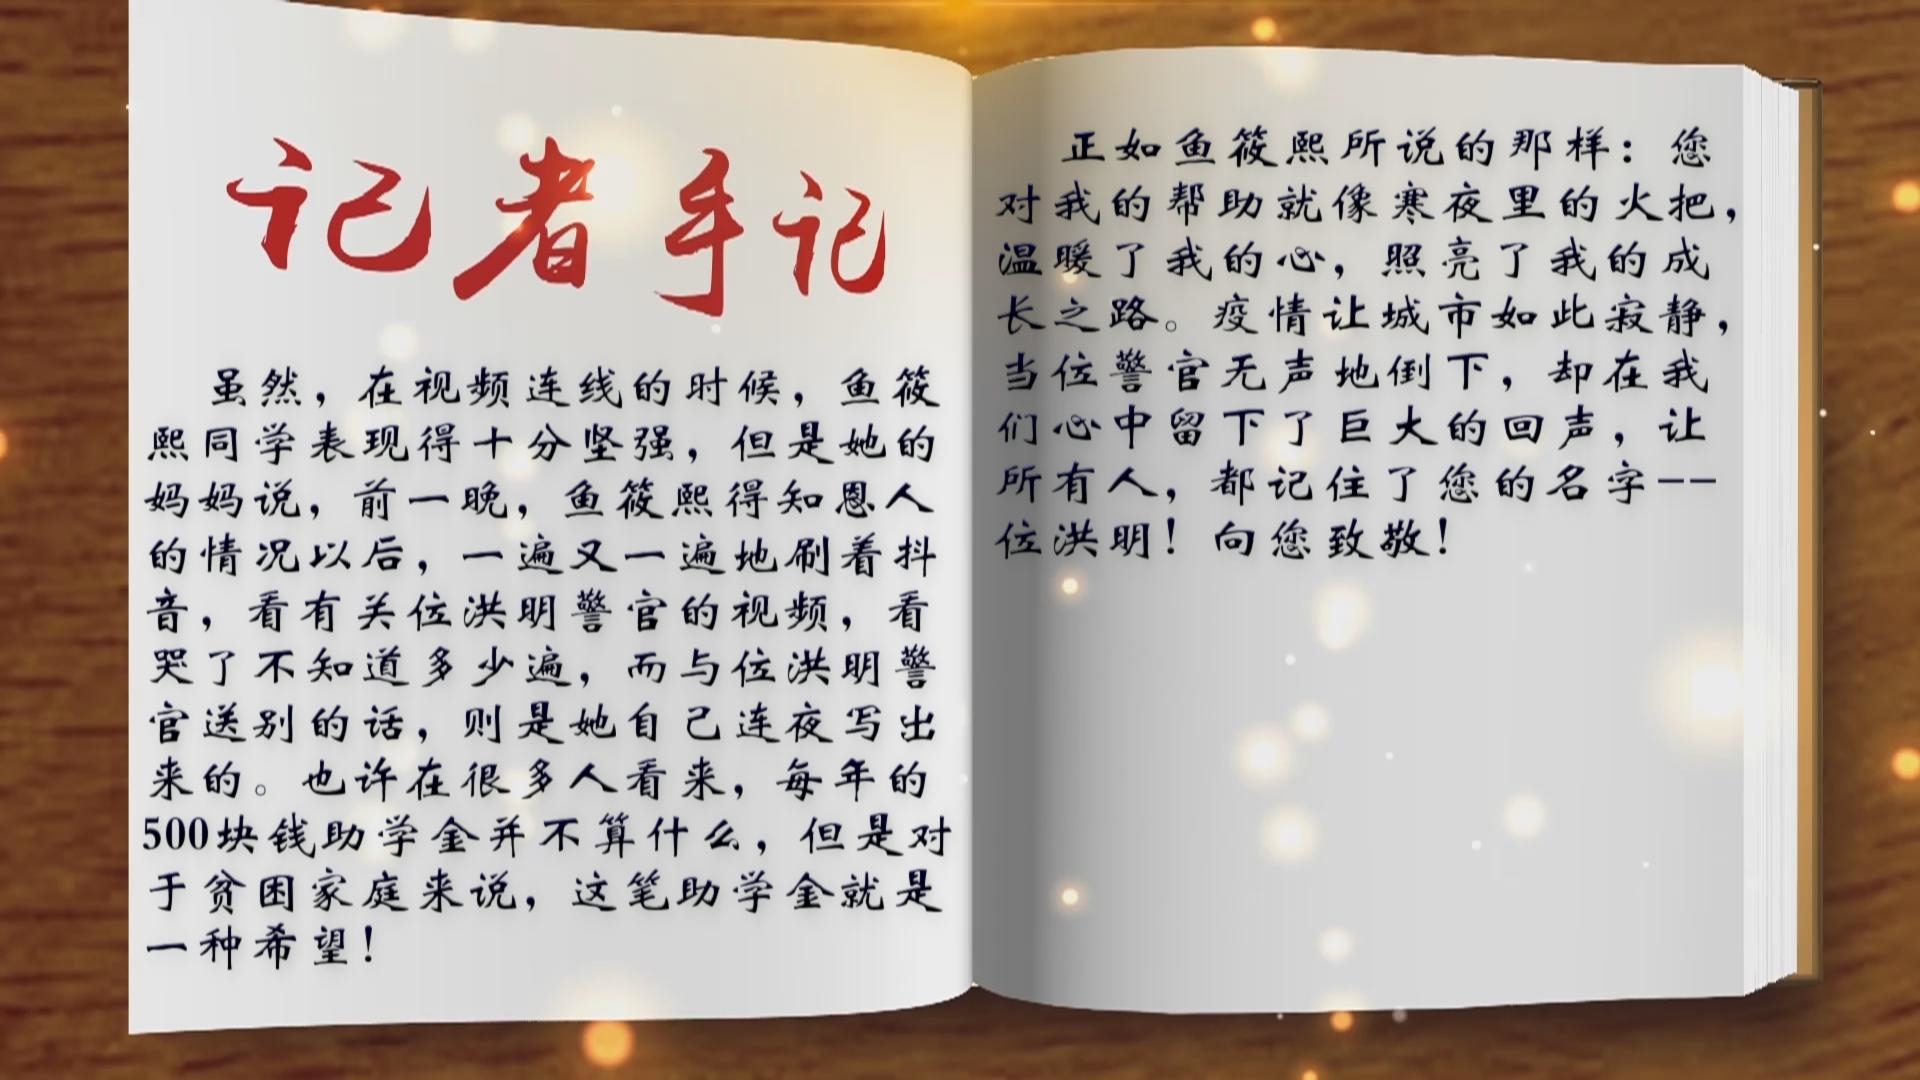 记者手记
虽然，在视频连线的时候，鱼筱
熙同学表现得十分坚强，但是她的
妈妈说，前一晚，鱼筱熙得知恩人
的情况以后，一遍又一遍地刷着抖
音，看有关位洪明警官的视频，看
哭了不知道多少遍，而与位洪明警
官送别的话，则是她自己连夜写出
来的。也许在很多人看来，每年的
500块钱助学金并不算什么，但是对
于贫困家庭来说，这笔助学金就是
一种希望！
正如鱼筱熙所说的那样：您
对我的帮助就像寒夜里的火把，
温暖了我的心，照亮了我的成
长之路。疫情让城市如此寂静，
当位警官无声地倒下，却在我
们心中留下了巨大的回声，让
所有人，都记住了您的名字--
位洪明！向您致敬！